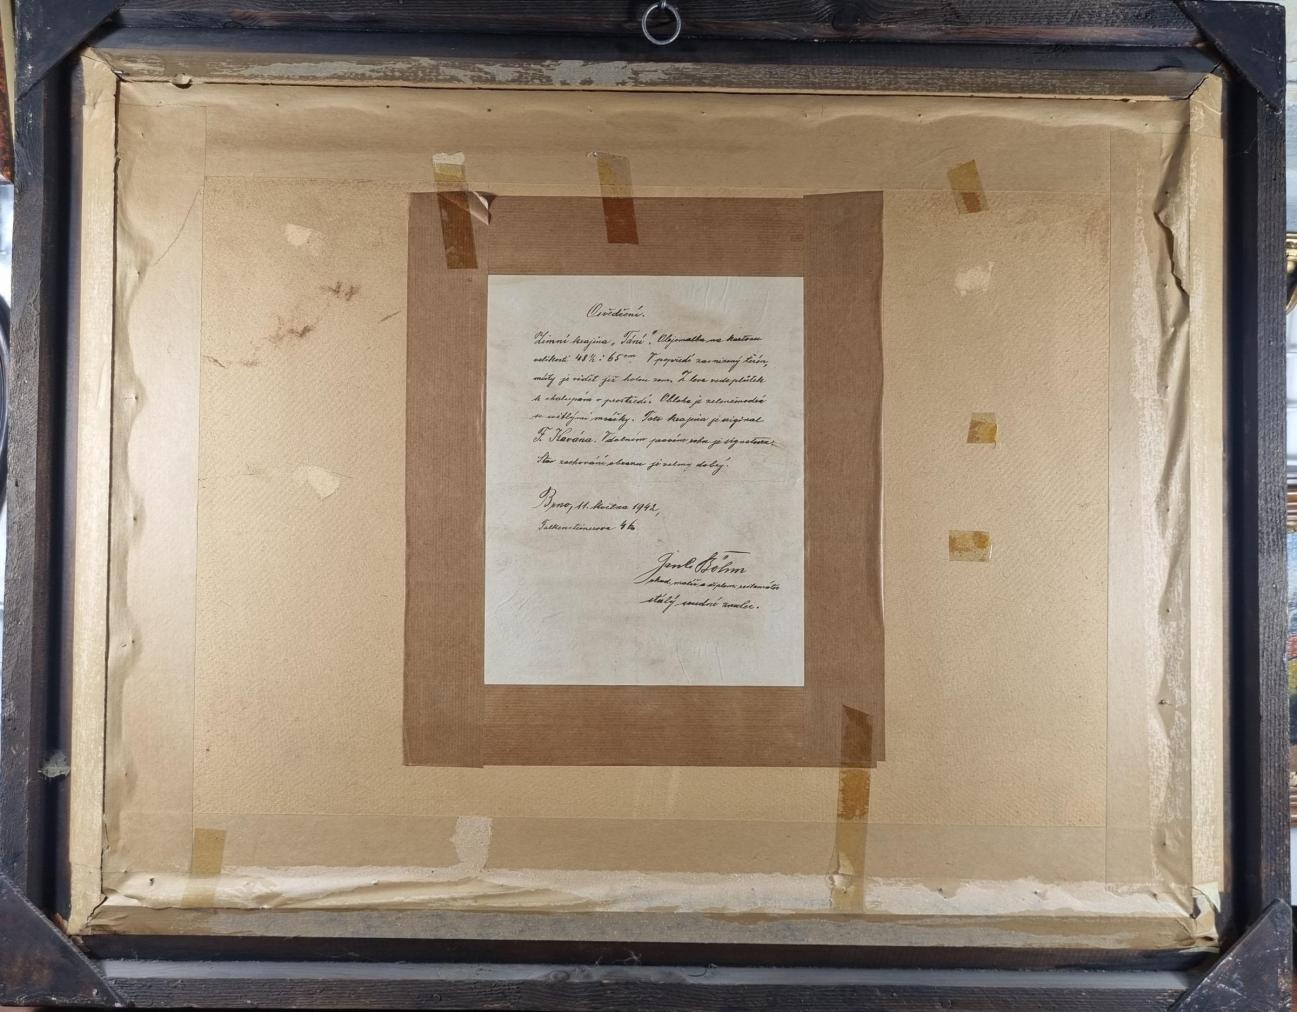 Osvědčení.
Zimní krajina „Tání". Olejomalba na kartonu
velikosti 48½ : 65 cm. V popředí zasněžený terén,
místy je vidět již holou zem. Z leva vede plůtek
k chalupám v prostředí. Obloha je zelenomodrá
se světlými mráčky. Tato krajina je original
F. Kavána. V dolním pravém rohu je signatura.
Stav zachování obrazu je velmi dobrý.
Brno, 11. května 1942,
Falkensteinerova 46
Böhm
akad. malíř a diplom. restaurátor
stálý soudní znalec.